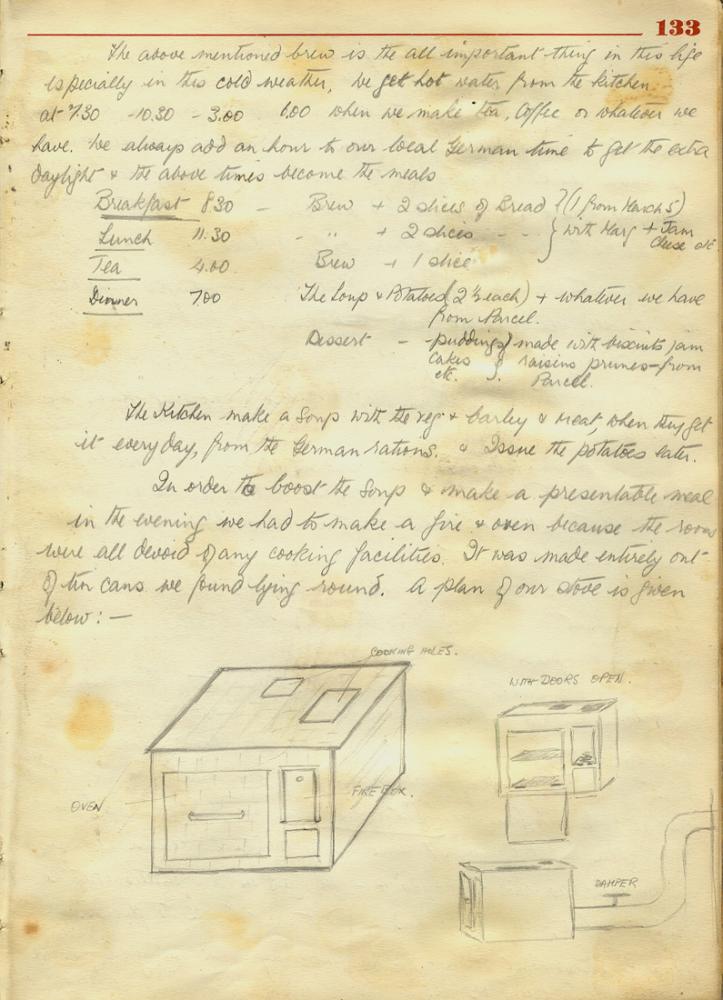 133
The above mentioned brew is the all important thing in this life
especially in this cold weather, we get hot water from the kitchen
at 7.30 - 10.30 - 3.00 6.00 when we make tea, Coffee or whatever we
have. We always add an hour to our local German time to get the extra
daylight & the above times become the meals
Breakfast 8.30 - Brew + 2 slices of Bread } (1 from March 5)
Lunch 11.30 - " + 2 slices - - } with Marg + Jam
Cheese etc
Tea 4.00 Brew + 1 slice
Dinner 7.00 The Soup & Potatoes (2 ½ each) + whatever we have
from Parcel.
Dessert - puddings } made with biscuits jam
cakes } raisins prunes - from
etc. } Parcel.
The Kitchen make a Soup with the veg & barley & meat, when they get
it everyday, from the German rations. & Issue the potatoes later.
In order to boost the Soup & make a presentable meal
in the evening we had to make a fire & oven because the rooms
were all devoid of any cooking facilities. It was made entirely out
of tin cans we found lying round. A plan of our stove is given
below: -
COOKING HOLES.
WITH DOORS OPEN.
OVEN
FIRE BOX.
DAMPER